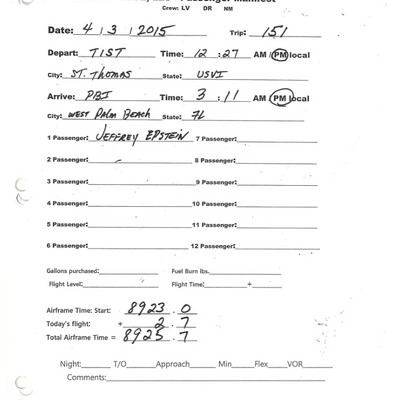 Passenger Manifest
Crew: LV DR NM
Date: 4 / 3 / 2015 Trip: 151
Depart: TIST Time: 12 : 27 AM / PM local
City: ST. THOMAS State: USVI
Arrive: PBI Time: 3 : 11 AM / PM local
City: WEST PALM BEACH State: FL
1 Passenger: JEFFREY EPSTEIN 7 Passenger:
2 Passenger: 8 Passenger:
3 Passenger: 9 Passenger:
4 Passenger: 10 Passenger:
5 Passenger: 11 Passenger:
6 Passenger: 12 Passenger:
Gallons purchased: Fuel Burn lbs.
Flight Level: Flight Time: +
Airframe Time: Start: 8923 . 0
Today's flight: + 2 . 7
Total Airframe Time = 8925 . 7
Night: T/O Approach Min Flex VOR
Comments: